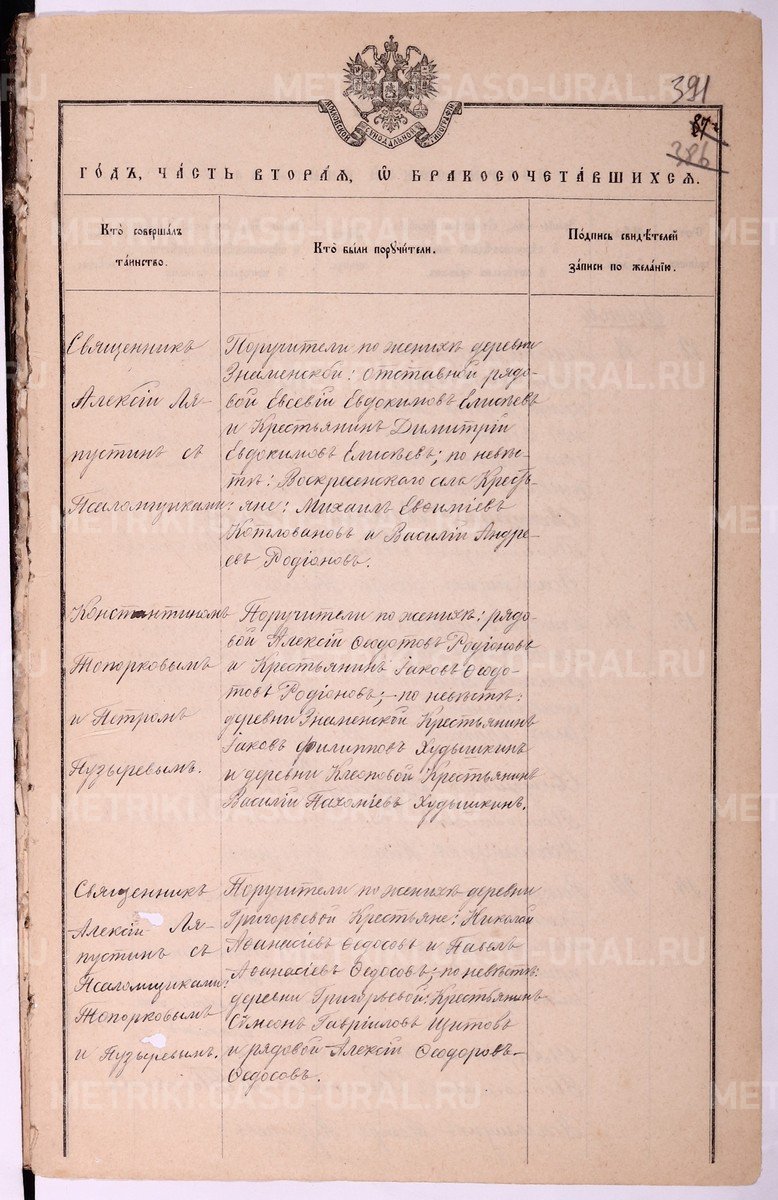 391
87
386
МОСКОВСКОЙ СУНОДАЛЬНОЙ ТИПОГРАФІИ
ГО́ДЪ, ЧА́СТЬ ВТОРА́Я, Ѡ҆ БРАКОСОЧЕТА́ВШИХСЯ.
Кто̀ соверша́лъ
та́инство.
Кто̀ бы́ли поручи́тели.
По́дпись свидѣ́телей
за́писи по жела́нію.
Священникъ
Алексій Ля-
пустинъ съ
Псаломщиками:
Константиномъ
Топорковымъ
и Петромъ
Пузыревымъ.
Поручители по женихѣ деревни
Знаменской: отставной рядо-
вой Евсевій Евдокимовъ Елисѣевъ
и Крестьянинъ Димитрій
Евдокимовъ Елисѣевъ; по невѣс-
тѣ: Воскресенскаго села Кресть-
яне: Михаилъ Евѳиміевъ
Котловановъ и Василій Андре-
евъ Родіоновъ.
Поручители по женихѣ: рядо-
вой Алексій Ѳеодотовъ Родіоновъ
и Крестьянинъ Іаковъ Ѳеодо-
товъ Родіоновъ; - по невѣстѣ:
деревни Знаменской Крестьянинъ
Іаковъ Филипповъ Худышкинъ
и деревни Клеоповой Крестьянинъ
Василій Пахоміевъ Худышкинъ.
Священникъ
Алексій Ля-
пустинъ съ
Псаломщиками:
Топорковымъ
и Пузыревымъ.
Поручители по женихѣ деревни
Григорьевой Крестьяне: Николай
Аѳанасіевъ Ѳедосовъ и Павелъ
Аѳанасіевъ Ѳедосовъ; по невѣстѣ:
деревни Григорьевой: Крестьянинъ
Сѵмеонъ Гавріиловъ Щитовъ
и рядовой Алексій Ѳеодоровъ
Ѳедосовъ.
METRIKI.GASO-URAL.RU